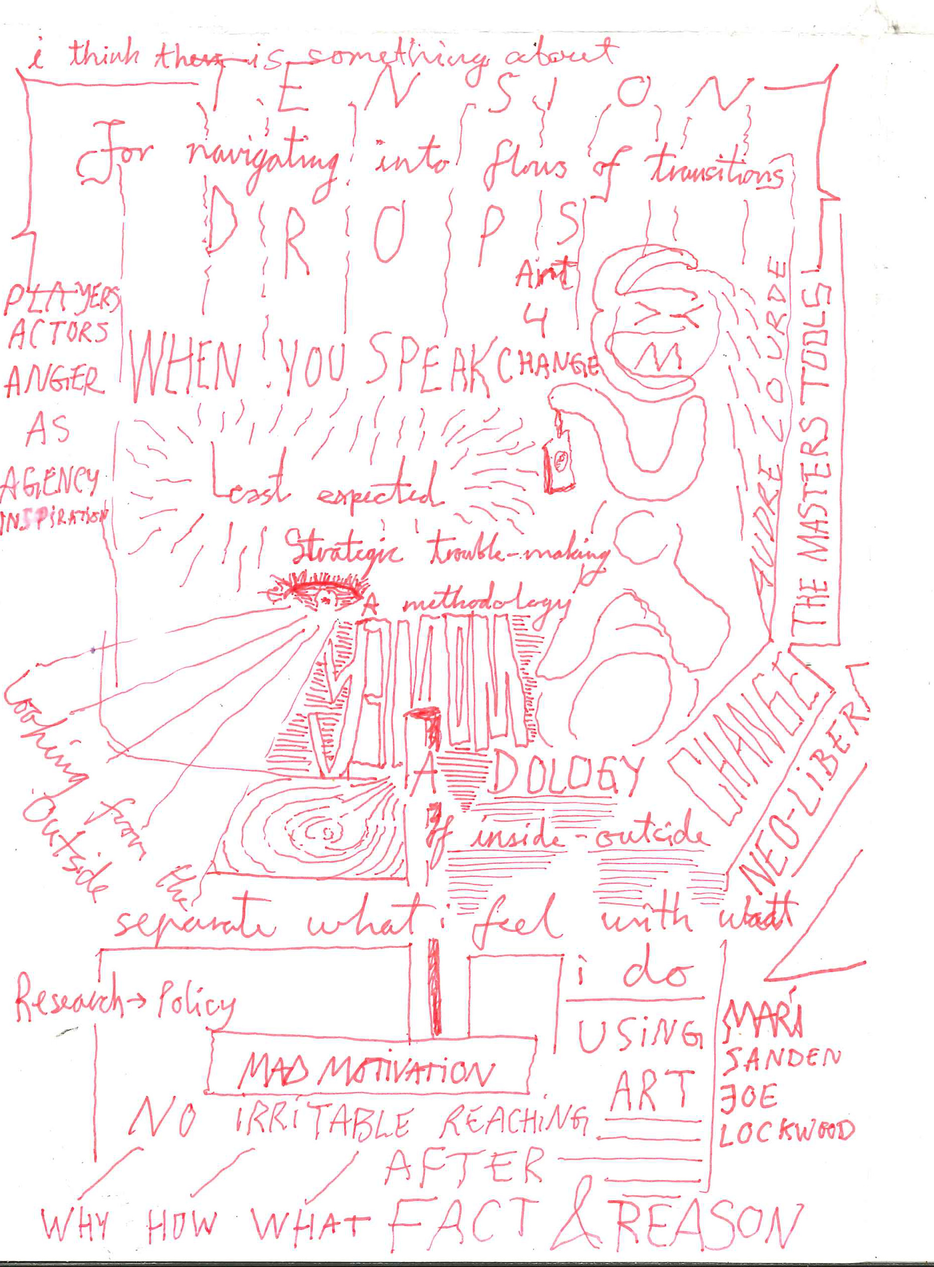 i think there is something about
TENSION
For navigating into flows of transitions
DROPS
Art
4
CHANGE
PLAYERS
ACTORS
ANGER
AS
AGENCY
INSPIRATION
WHEN YOU SPEAK
AUDRE LOURDE
THE MASTERS TOOLS
Least expected
Strategic trouble-making
A methodology
A DOLOGY
Of inside-outside
Looking from the
Outside
CHANGE
NEO-LIBERA
separate what i feel with what
i do
Research → Policy
USING
ART
MAD MOTIVATION
MARI
SANDEN
JOE
LOCKWOOD
NO IRRITABLE REACHING
AFTER
WHY HOW WHAT FACT & REASON